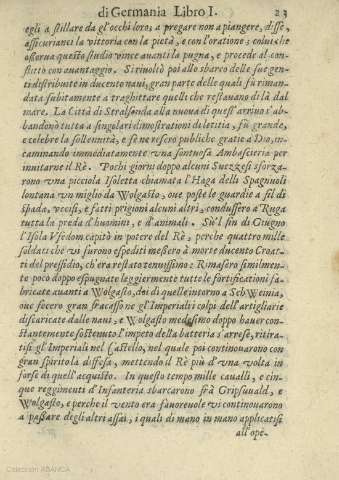 di Germania Libro I. 23
egli a stillare da gl'occhi loro; a pregare non a piangere, disse,
assicurianci la vittoria con la pietà, e con l'oratione; colui che
osserua questo studio vince auanti la pugna, e procede al con-
flitto con auantaggio. Si riuoltò poi allo sbarco delle sue gen-
ti distribuite in ducento naui, gran parte delle quali fù riman-
data subitamente a traghettare quelli che restauano di là dal
mare. La Città di Stralsonda alla nuoua di quest'arriuo s'ab-
bandonò tutta a singolari dimostrationi di letitia, fù grande,
e celebre la sollennità, e se ne resero publiche gratie a Dio, in-
caminando immediatamente vna sontuosa Ambascieria per
inuitarne il Rè. Pochi giorni doppo alcuni Suezzesi sforza-
rono vna picciola Isoletta chiamata l'Haga delli Spagnuoli
lontana vn miglio da Wolgasto, oue poste le guardie a fil di
spada, vccisi, e fatti prigioni alcuni altri, condussero a Ruga
tutta la preda d'huomini, e d'animali. Sù'l fin di Giugno
l'Isola Vsedom capitò in potere del Rè, perche quattro mille
soldati che vi furono espediti messero à morte ducento Croat-
ti del presidio, ch'era restato tenuissimo: Rimasero similmen-
te poco doppo espugnate leggiermente tutte le fortificationi fa-
bricate auanti a Wolgasto, dei di quelle intorno a Schweinia,
oue fecero gran fracasso ne gl'Imperialisti i colpi dell'artigliarie
discaricate dalle naui: e Wolgasto medesimo doppo hauer con-
stantemente sostenuto l'impeto della batteria s'arrese, ritira-
tisi gl'Imperiali nel Castello, nel quale poi continouarono con
gran spirito la difesa, mettendo il Rè più d'vna volta in
forse di quell'acquisto. In questo tempo mille caualli, e cin-
que reggimenti d'Infanteria sbarcarono frà Gripsuuald, e
Wolgasto, e perche il vento era fauoreuole vi continouarono
a passare degli altri assai, i quali di mano in mano applicatisi
all'ope-
Colección ABANCA